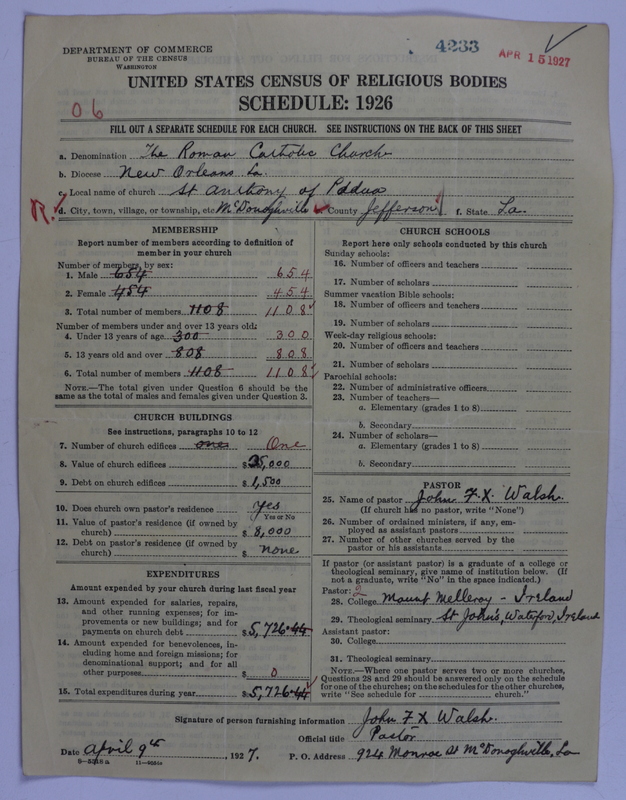 4233
APR 15 1927
DEPARTMENT OF COMMERCE
BUREAU OF THE CENSUS
WASHINGTON
UNITED STATES CENSUS OF RELIGIOUS BODIES
SCHEDULE: 1926
06
FILL OUT A SEPARATE SCHEDULE FOR EACH CHURCH. SEE INSTRUCTIONS ON THE BACK OF THIS SHEET
a. Denomination The Roman Catholic Church
b. Diocese New Orleans La.
c. Local name of church St Anthony of Padua
R. d. City, town, village, or township, etc. McDonoghville County Jefferson f. State La.
MEMBERSHIP
Report number of members according to definition of
member in your church
Number of members, by sex:
1. Male 654 654
2. Female 454 454
3. Total number of members 1108 1108
Number of members under and over 13 years old:
4. Under 13 years of age 300 300
5. 13 years old and over 808 808
6. Total number of members 1108 1108
NOTE.—The total given under Question 6 should be the
same as the total of males and females given under Question 3.
CHURCH BUILDINGS
See instructions, paragraphs 10 to 12
7. Number of church edifices one One
8. Value of church edifices $35,000
9. Debt on church edifices $1,500
10. Does church own pastor's residence Yes
Yes or No
11. Value of pastor's residence (if owned by
church) $8,000
12. Debt on pastor's residence (if owned by
church) $ none
EXPENDITURES
Amount expended by your church during last fiscal year
13. Amount expended for salaries, repairs,
and other running expenses; for im-
provements or new buildings; and for
payments on church debt $5,726.44
14. Amount expended for benevolences, in-
cluding home and foreign missions; for
denominational support; and for all
other purposes $ 0
15. Total expenditures during year $5,726.44
CHURCH SCHOOLS
Report here only schools conducted by this church
Sunday schools:
16. Number of officers and teachers
17. Number of scholars
Summer vacation Bible schools:
18. Number of officers and teachers
19. Number of scholars
Week-day religious schools:
20. Number of officers and teachers
21. Number of scholars
Parochial schools:
22. Number of administrative officers
23. Number of teachers—
a. Elementary (grades 1 to 8)
b. Secondary
24. Number of scholars—
a. Elementary (grades 1 to 8)
b. Secondary
PASTOR
25. Name of pastor John F. X. Walsh.
(If church has no pastor, write "None")
26. Number of ordained ministers, if any, em-
ployed as assistant pastors
27. Number of other churches served by the
pastor or his assistants
If pastor (or assistant pastor) is a graduate of a college or
theological seminary, give name of institution below. (If
not a graduate, write "No" in the space indicated.)
Pastor: 2
28. College Mount Melleray - Ireland
29. Theological seminary St John's, Waterford, Ireland
Assistant pastor:
30. College
31. Theological seminary
NOTE.—Where one pastor serves two or more churches,
Questions 28 and 29 should be answered only on the schedule
for one of the churches; on the schedules for the other churches,
write "See schedule for church."
Signature of person furnishing information John F X Walsh.
Official title Pastor
Date April 9th, 1927. P. O. Address 924 Monroe St McDonoghville, La